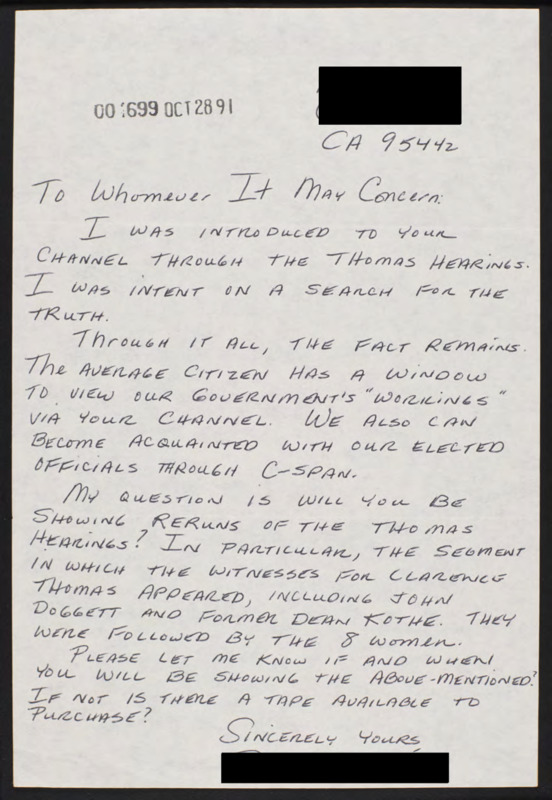 001699 OCT 28 91
CA 95442
To Whomever It May Concern:
I was introduced to your
channel through the Thomas Hearings.
I was intent on a search for the
truth.
Through it all, the fact remains.
The average citizen has a window
to view our Government's "workings"
via your channel. We also can
become acquainted with our elected
officials through C-SPAN.
My question is will you be
showing reruns of the Thomas
Hearings? In particular, the segment
in which the witnesses for Clarence
Thomas appeared, including John
Doggett and former Dean Kothe. They
were followed by the 8 women.
Please let me know if and when
you will be showing the above-mentioned?
If not is there a tape available to
purchase?
Sincerely yours